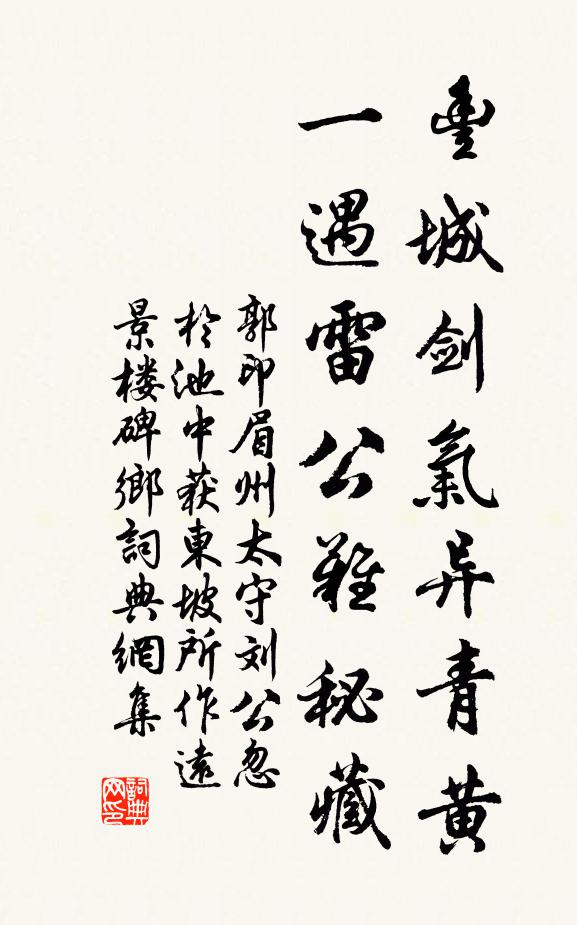 豊城劍氣异青黄
一遇雷公難秘藏
郭印眉州太守刘公忽
於池中获東坡所作遠
景楼碑鄉詞典網集
詞典网印